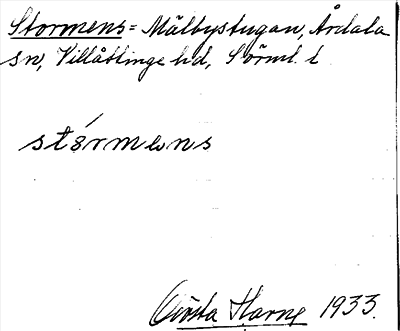 Stormens = Mälbystugan, Årdala
sn, Villåttinge hd, Sörml. l
stórmens
Gösta Harne 1933.